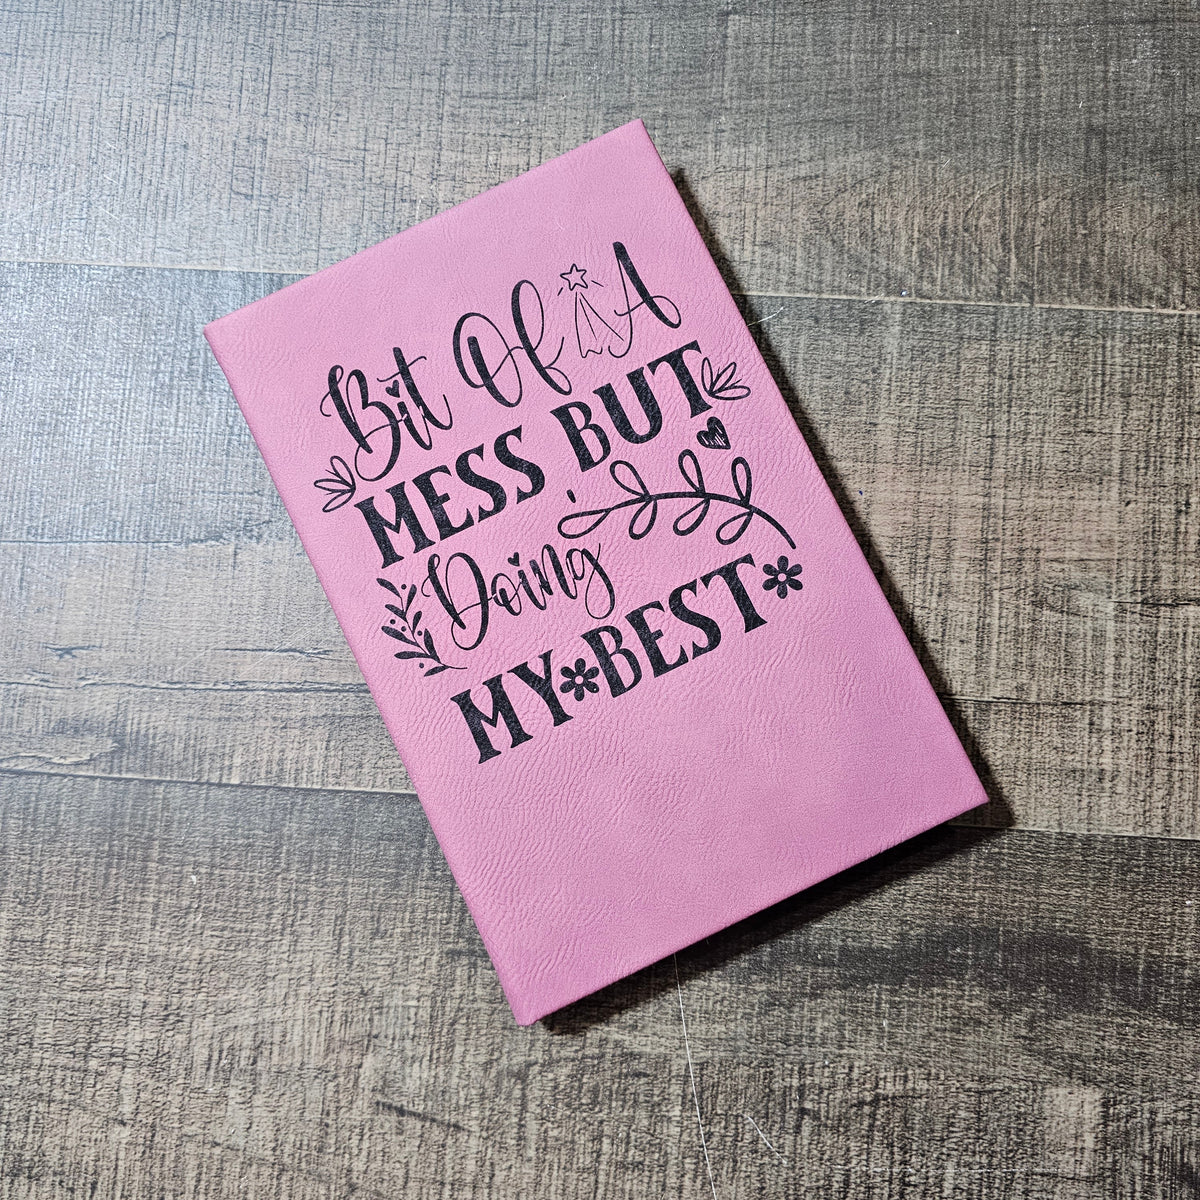 Bit Of A
MESS BUT
Doing
MY BEST